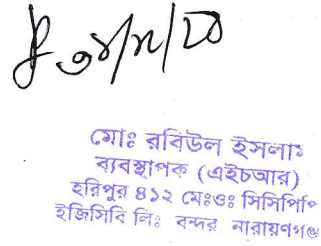 মোঃ রবিউল ইসলাম
ব্যবস্থাপক (এইচআর)
হরিপুর ৪১২ মেঃওঃ সিসিপিপি
ইজিসিবি লিঃ বন্দর নারায়ণগঞ্জ